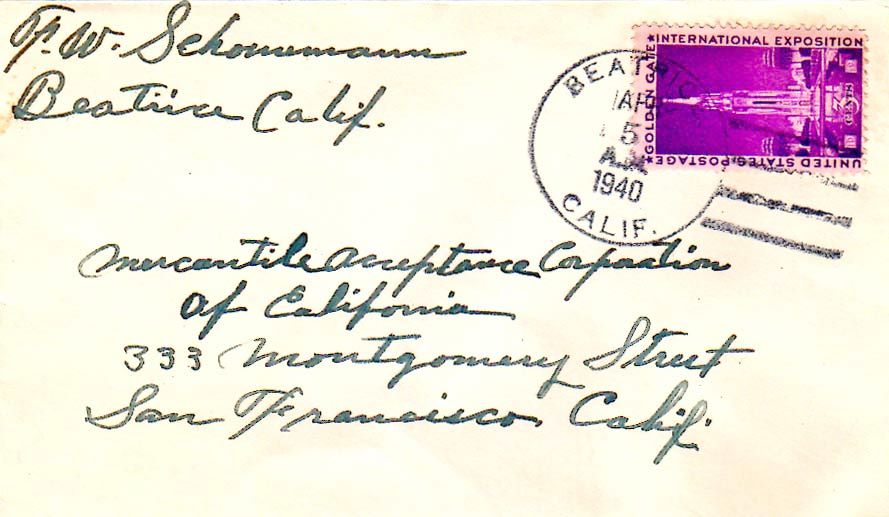 F. W. Schonemann
Beatrice Calif.
BEATRICE
5
A.M.
1940
CALIF.
★ INTERNATIONAL EXPOSITION
★ GOLDEN GATE
3 CENTS
UNITED STATES POSTAGE
Mercantile Acceptance Corporation
of California
333 Montgomery Street
San Francisco, Calif.